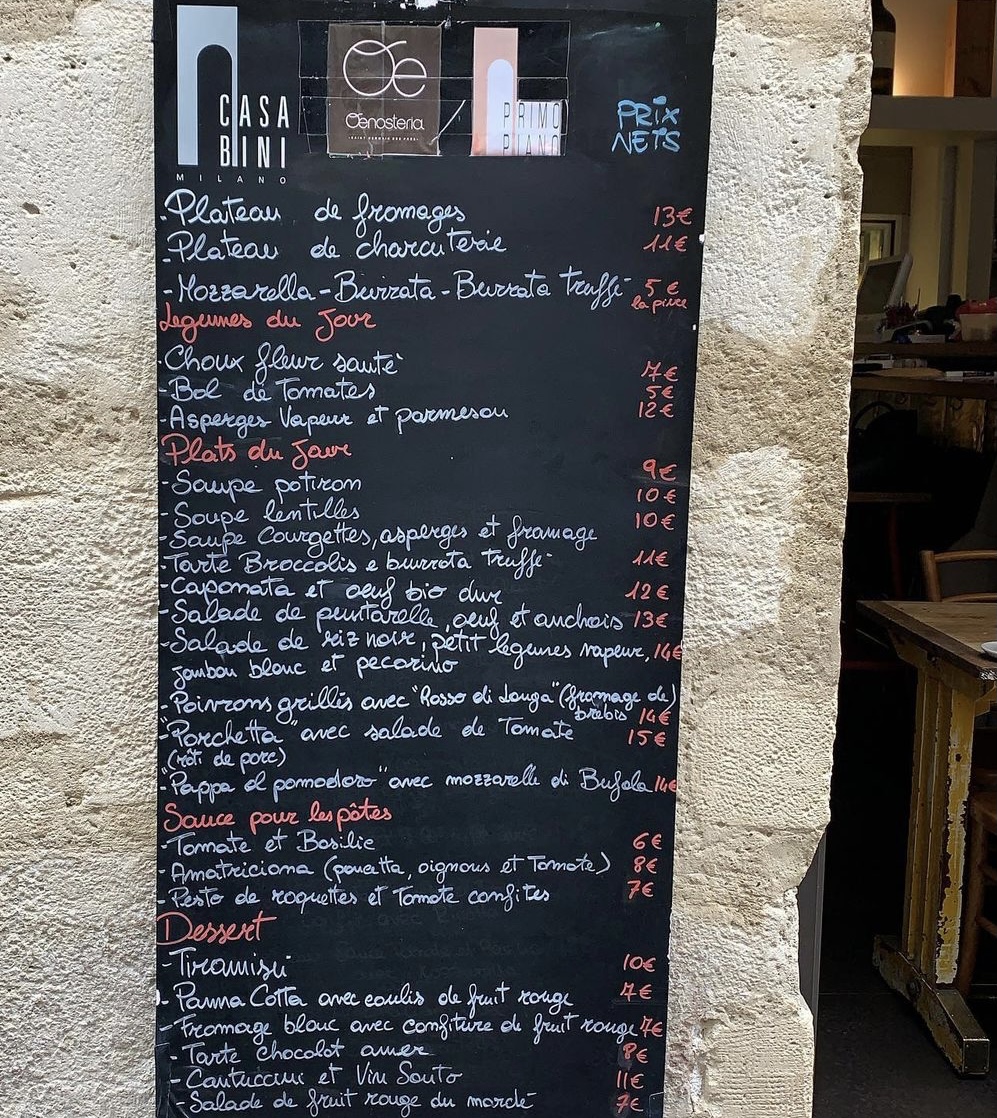 CASA
BINI
MILANO
Oe
Œnosteria
SAINT GERMAIN DES PRÉS
PRIMO
PIANO
PRIX
NETS
- Plateau de fromages 13€
- Plateau de charcuterie 11€
- Mozzarella - Burrata - Burrata truffé 5€
la pièce
Legumes du Jour
- Choux fleur sauté 7€
- Bol de Tomates 5€
- Asperges Vapeur et parmesan 12€
Plats du Jour
- Soupe potiron 9€
- Soupe lentilles 10€
- Soupe Courgettes, asperges et fromage 10€
- Tarte Broccolis e burrata truffé 11€
- Caponata et oeuf bio dur 12€
- Salade de puntarelle, oeuf et anchois 13€
- Salade de riz noir, petit legumes vapeur, 14€
jambon blanc et pecorino
- Poivrons grillés avec "Rosso di Langa" (fromage de)
brebis 14€
- "Porchetta" avec salade de Tomate 15€
(rôti de porc)
- "Pappa al pomodoro" avec mozzarella di Bufala 14€
Sauce pour les pâtes
- Tomate et Basilic 6€
- Amatriciana (pancetta, oignons et Tomate) 8€
- Pesto de roquettes et Tomate confites 7€
Dessert
- Tiramisù 10€
- Panna Cotta avec coulis de fruit rouge 7€
- Fromage blanc avec confiture de fruit rouge 7€
- Tarte chocolat amer 8€
- Cantuccini et Vin Santo 11€
- Salade de fruit rouge du marché 7€